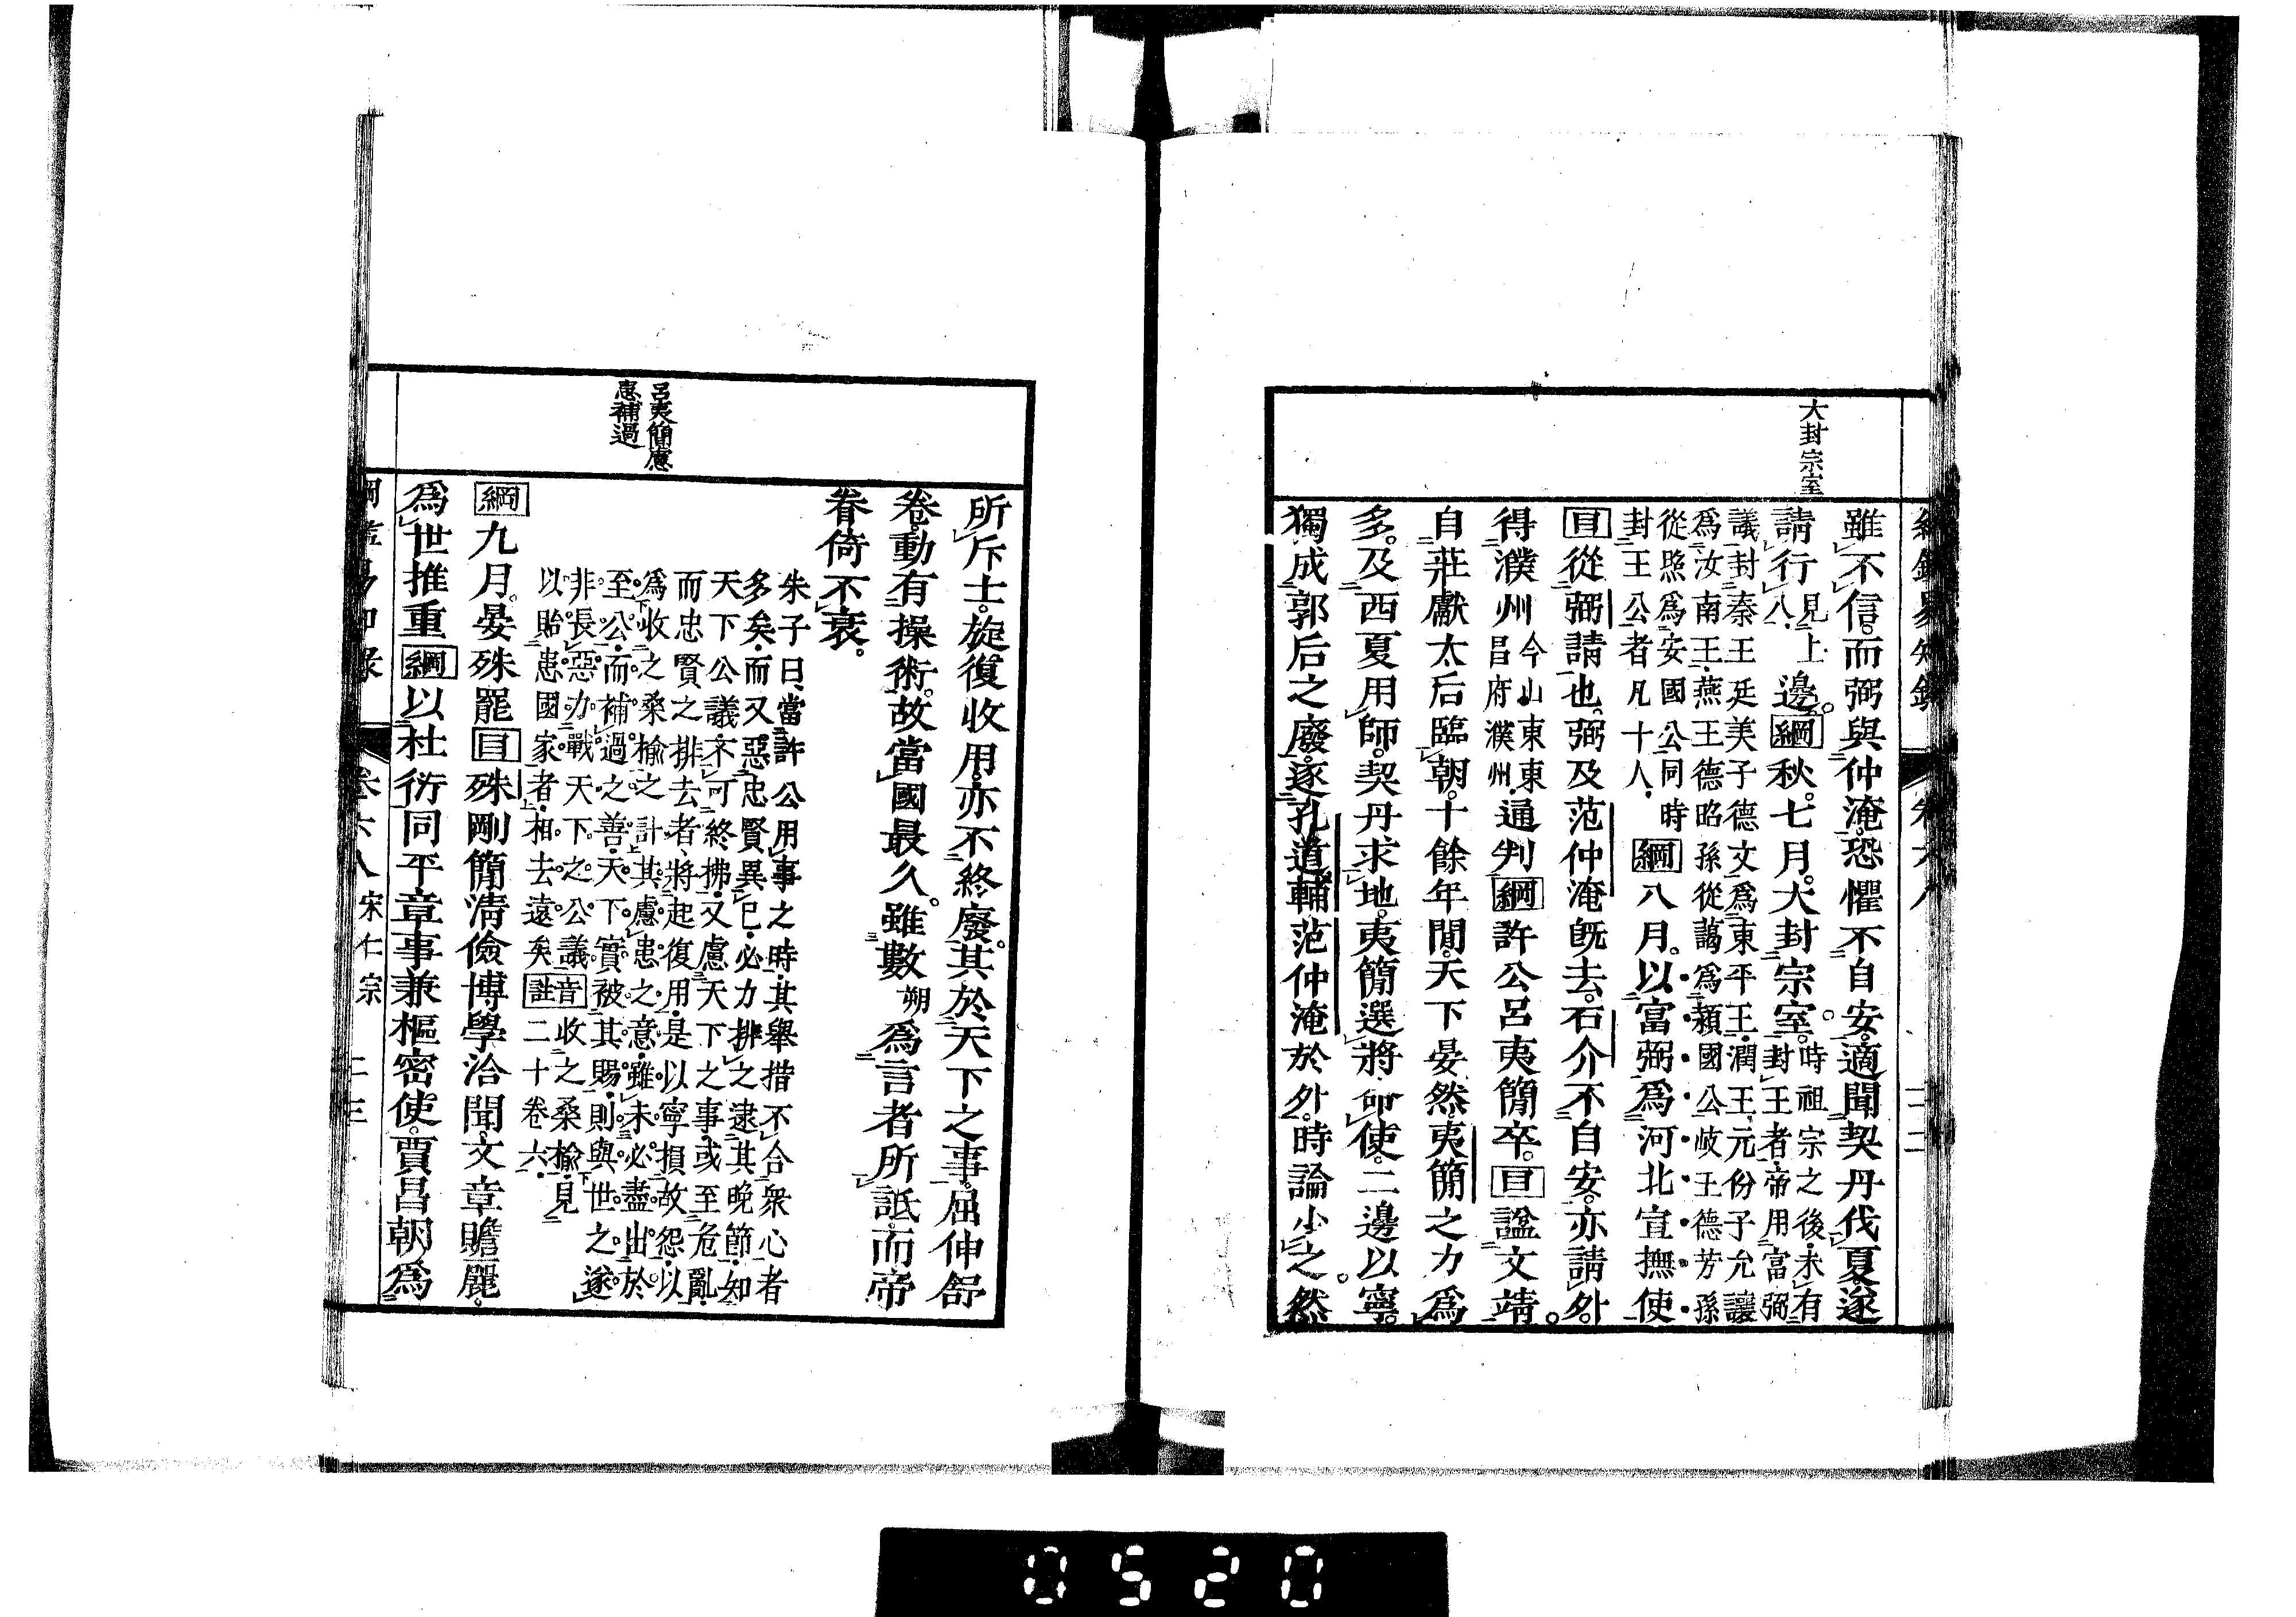 大封宗室
雖不信。而弼與仲淹。恐懼不自安。適聞契丹伐夏。遂
請行
見上
八
邊。綱秋。七月。大封宗室。
時祖宗之後、未有
封王者、帝用富弼
議、封秦王廷美子德文爲東平王、潤王元份子允讓
爲汝南王、燕王德昭孫從藹爲潁國公、岐王德芳孫
從照爲安國公、同時
封王公者凡十人、
綱八月。以富弼爲河北宣撫使
目從弼請也。弼及范仲淹旣去。石介不自安。亦請外。
得濮州
今山東東
昌府濮州、
通判綱許公呂夷簡卒。目諡文靖。
自莊獻太后臨朝。十餘年閒。天下晏然。夷簡之力爲
多。及西夏用師。契丹求地。夷簡選將命使。二邊以寧。
獨成郭后之廢。逐孔道輔范仲淹於外。時論少之。然
呂夷簡慮
患補過
所斥士。旋復收用。亦不終廢。其於天下之事。屈伸舒
卷。動有操術。故當國最久。雖數
朔
爲言者所詆。而帝
眷倚不衰。
朱子曰、當許公用事之時、其舉措不合衆心者
多矣、而又惡忠賢異已、必力排之、逮其晩節、知
天下公議不可終拂、又慮天下之事、或至危亂、
而忠賢之排去者、將起復用、是以寧損故怨、以
爲收之桑楡之計、其慮患之意、雖未必盡出於
至公、而補過之善、天下實被其賜、則與世之遂
非長惡力戰天下之公議、
以貽患國家者、相去遠矣
音註
收之桑楡、見
二十卷六、
綱九月。晏殊罷目殊剛簡淸儉博學洽聞。文章贍麗。
爲世推重綱以杜衍同平章事兼樞密使。賈昌朝爲
卷六八 宋仁宗